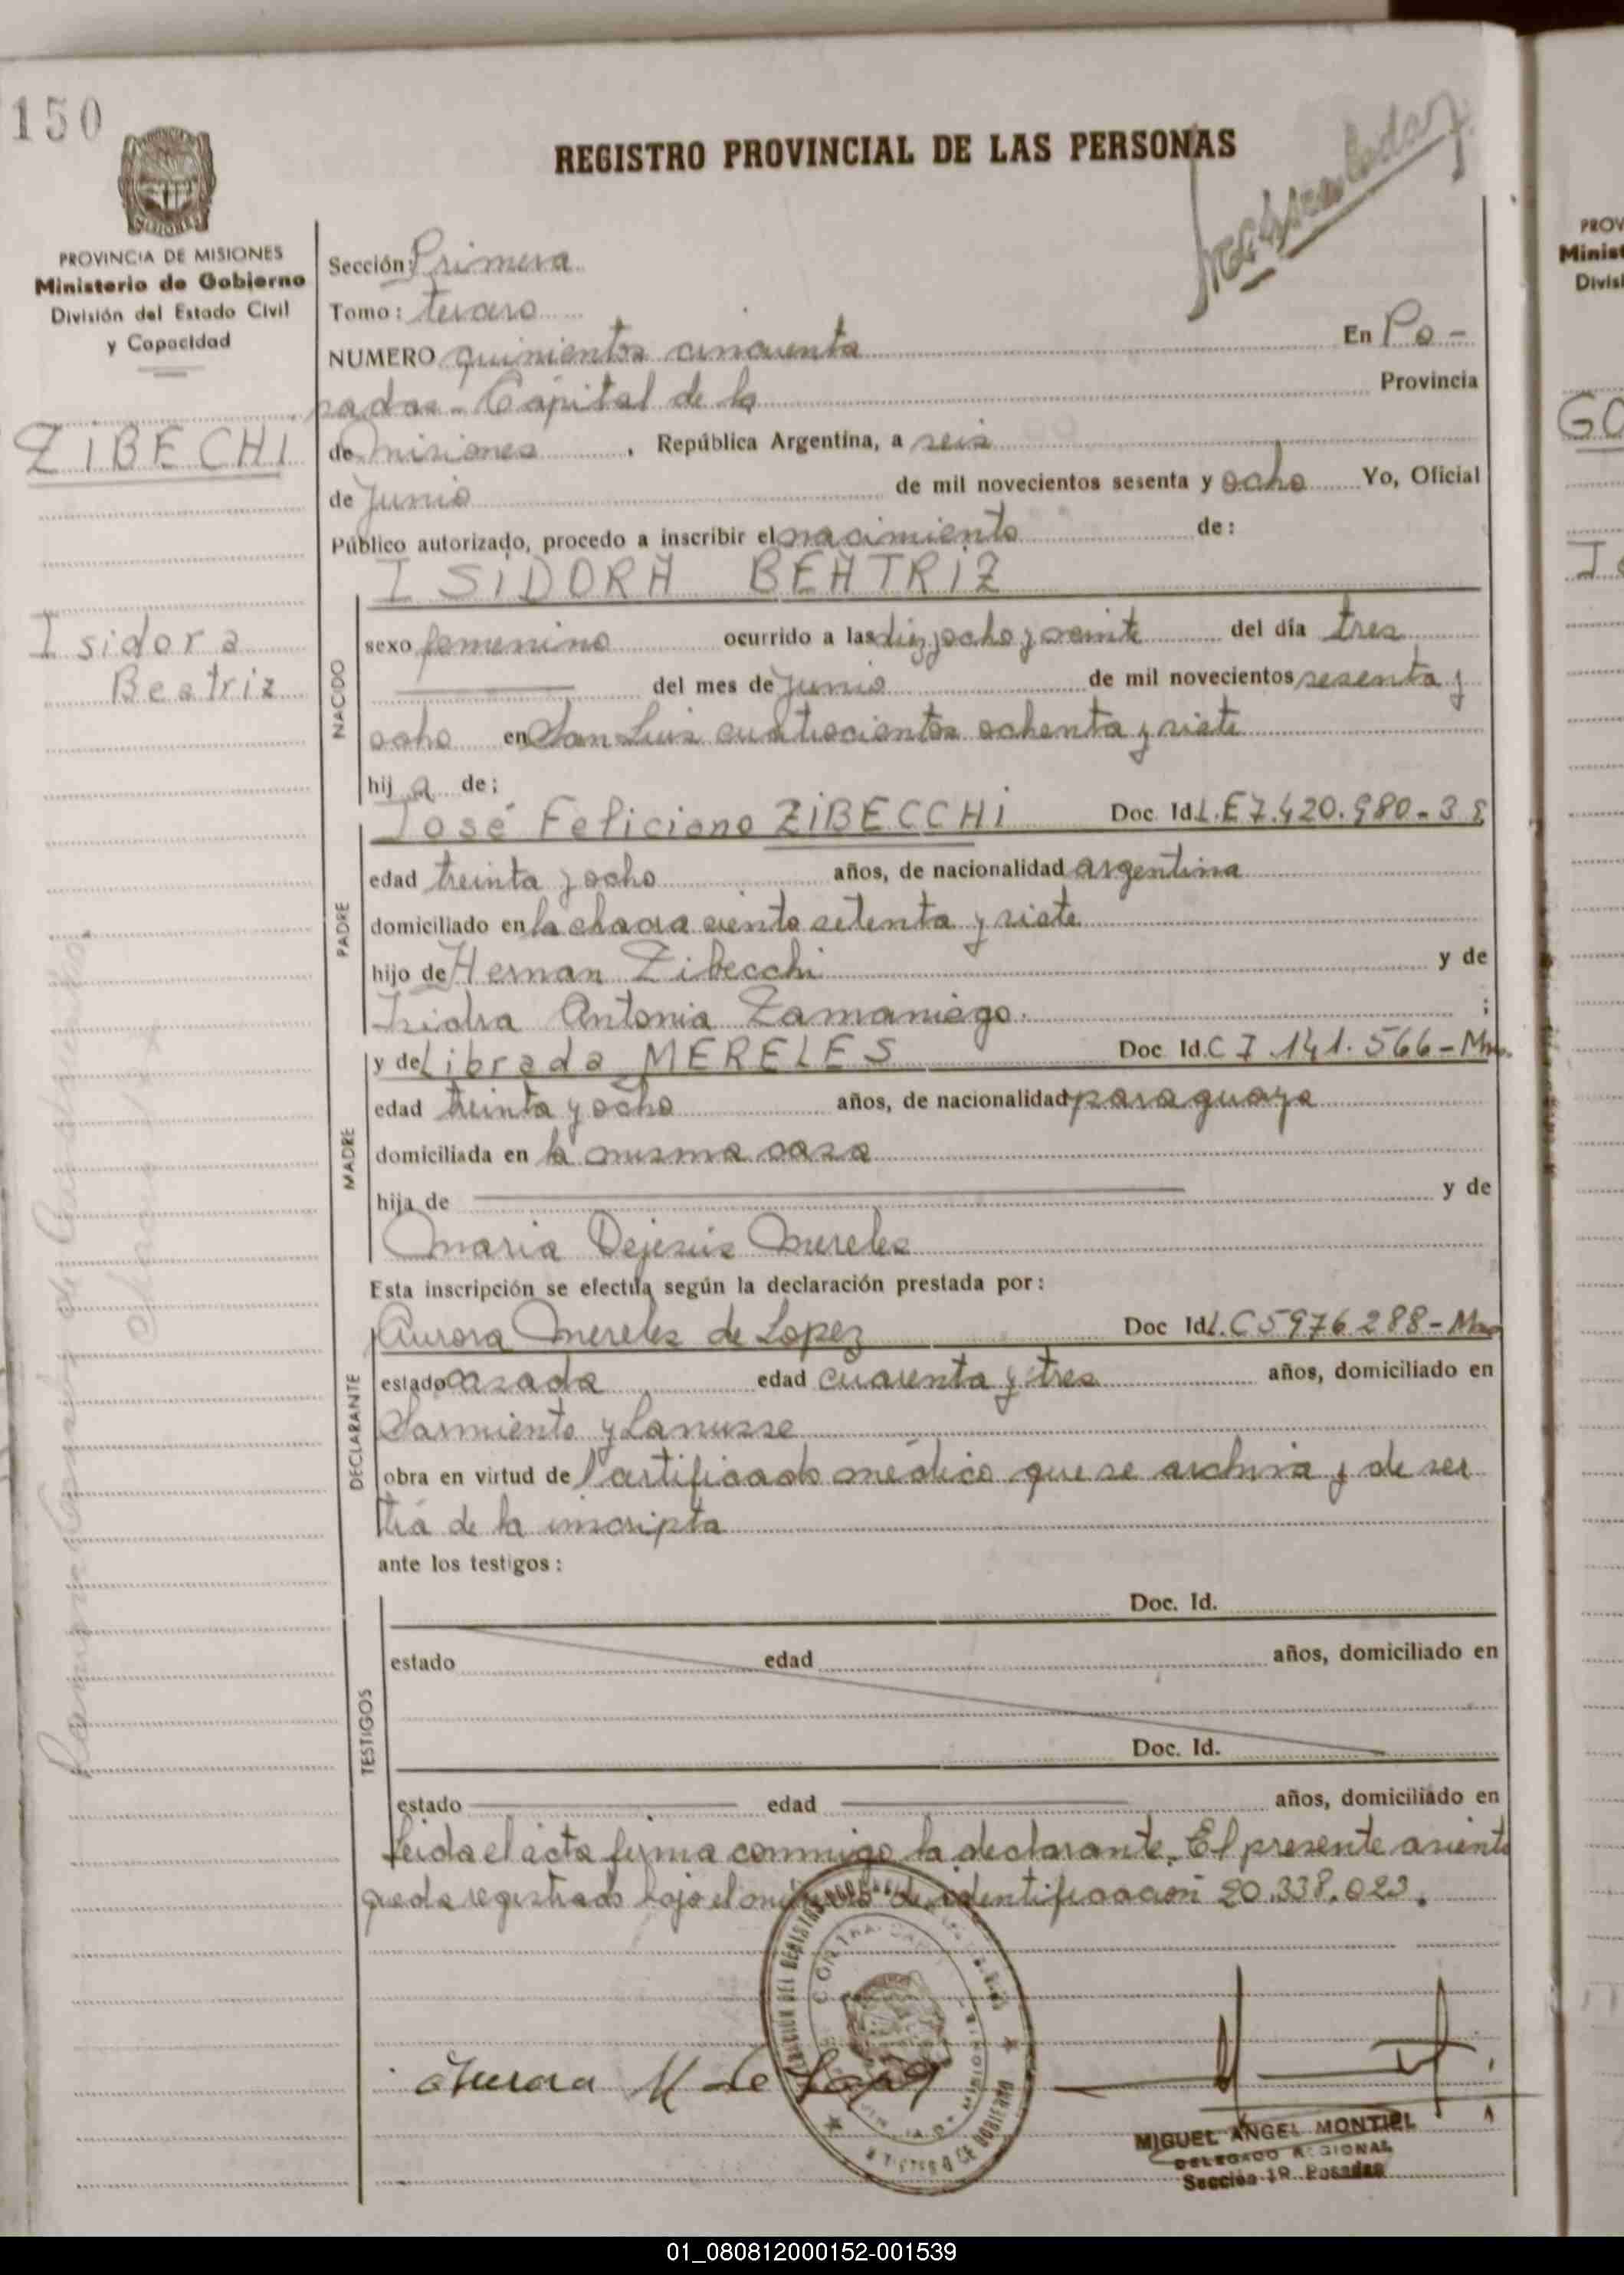 150
REGISTRO PROVINCIAL DE LAS PERSONAS
PROVINCIA DE MISIONES
Ministerio de Gobierno
División del Estado Civil
y Capacidad
ZIBECHI
Isidora
Beatriz
Sección: Primera
Tomo: tercero
NUMERO quinientos cincuenta En Po-
sadas - Capital de la Provincia
de Misiones, República Argentina, a seis
de Junio de mil novecientos sesenta y ocho Yo, Oficial
Público autorizado, procedo a inscribir el nacimiento de:
ISIDORA BEATRIZ
NACIDO
sexo femenino ocurrido a las diez y ocho y veinte del día tres
del mes de Junio de mil novecientos sesenta y
ocho en San Luis cuatrocientos ochenta y siete
hij a de:
José Feliciano ZIBECCHI Doc. Id. L.E 7.420.980-
PADRE
edad treinta y ocho años, de nacionalidad argentina
domiciliado en la chacra ciento setenta y siete
hijo de Hernan Zibecchi y de
Isidra Antonia Zamaniego. ;
y de Librada MERELES Doc. Id. C I 141.566-Mns.
MADRE
edad treinta y ocho años, de nacionalidad paraguaya
domiciliada en la misma casa
hija de y de
Maria Dejesús Mereles
Esta inscripción se efectúa según la declaración prestada por:
Aurora Mereles de Lopez Doc Id L.C 5976288-Mns
DECLARANTE
estado casada edad cuarenta y tres años, domiciliado en
Sarmiento y Lanusse
obra en virtud de Certificado médico que se archiva y de ser
tia de la inscripta
ante los testigos:
TESTIGOS
Doc. Id.
estado edad años, domiciliado en
Doc. Id.
estado edad años, domiciliado en
Leida el acta firma conmigo la declarante. El presente asiento
queda registrado bajo el número de identificación 20.338.023.
Aurora M de Lopez
MIGUEL ANGEL MONTIEL
DELEGADO REGIONAL
Sección 1ª Posadas
01_080812000152-001539